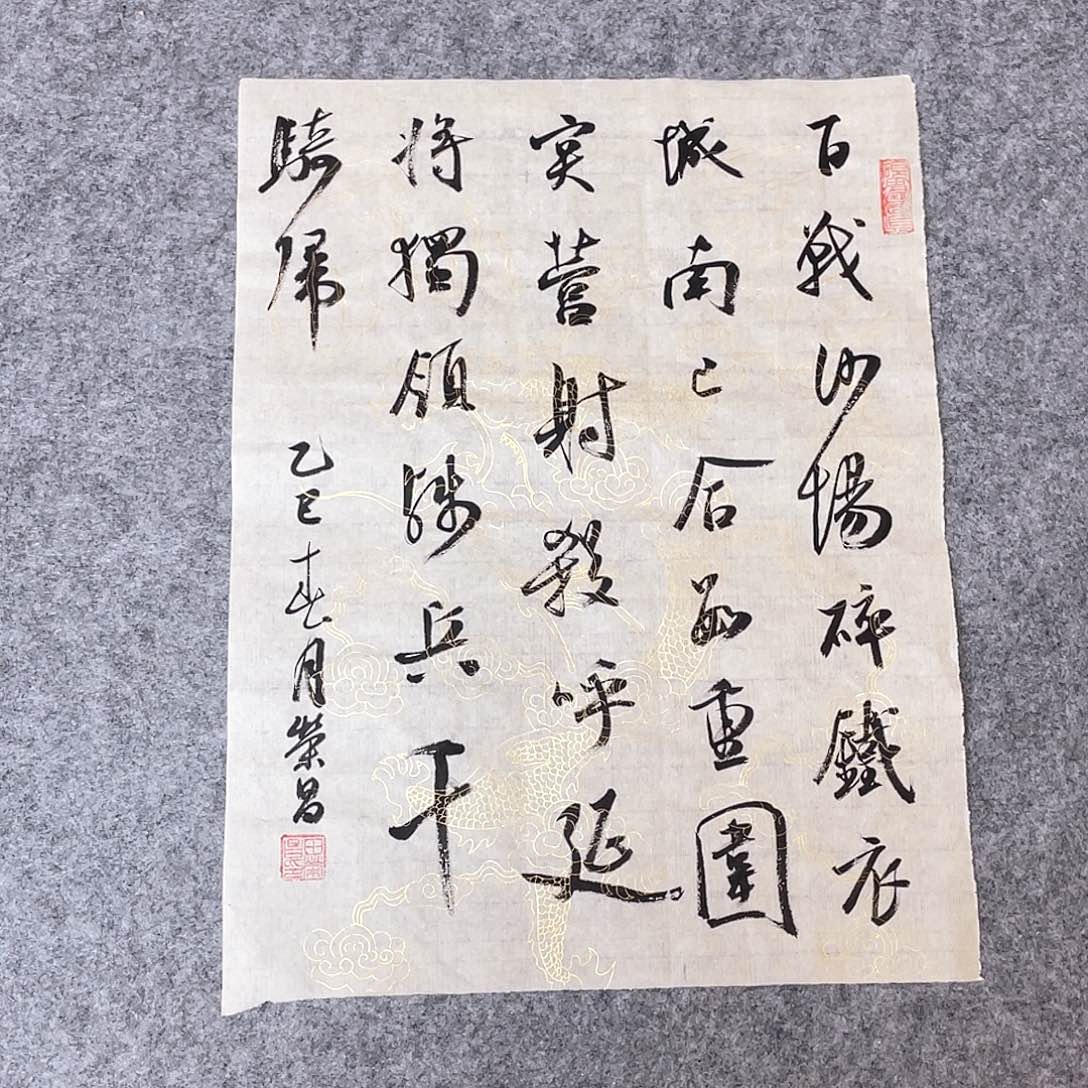 百戰沙場碎鐵衣
城南已合數重圍
突營射殺呼延
將獨領殘兵千
騎歸
乙巳春月榮昌